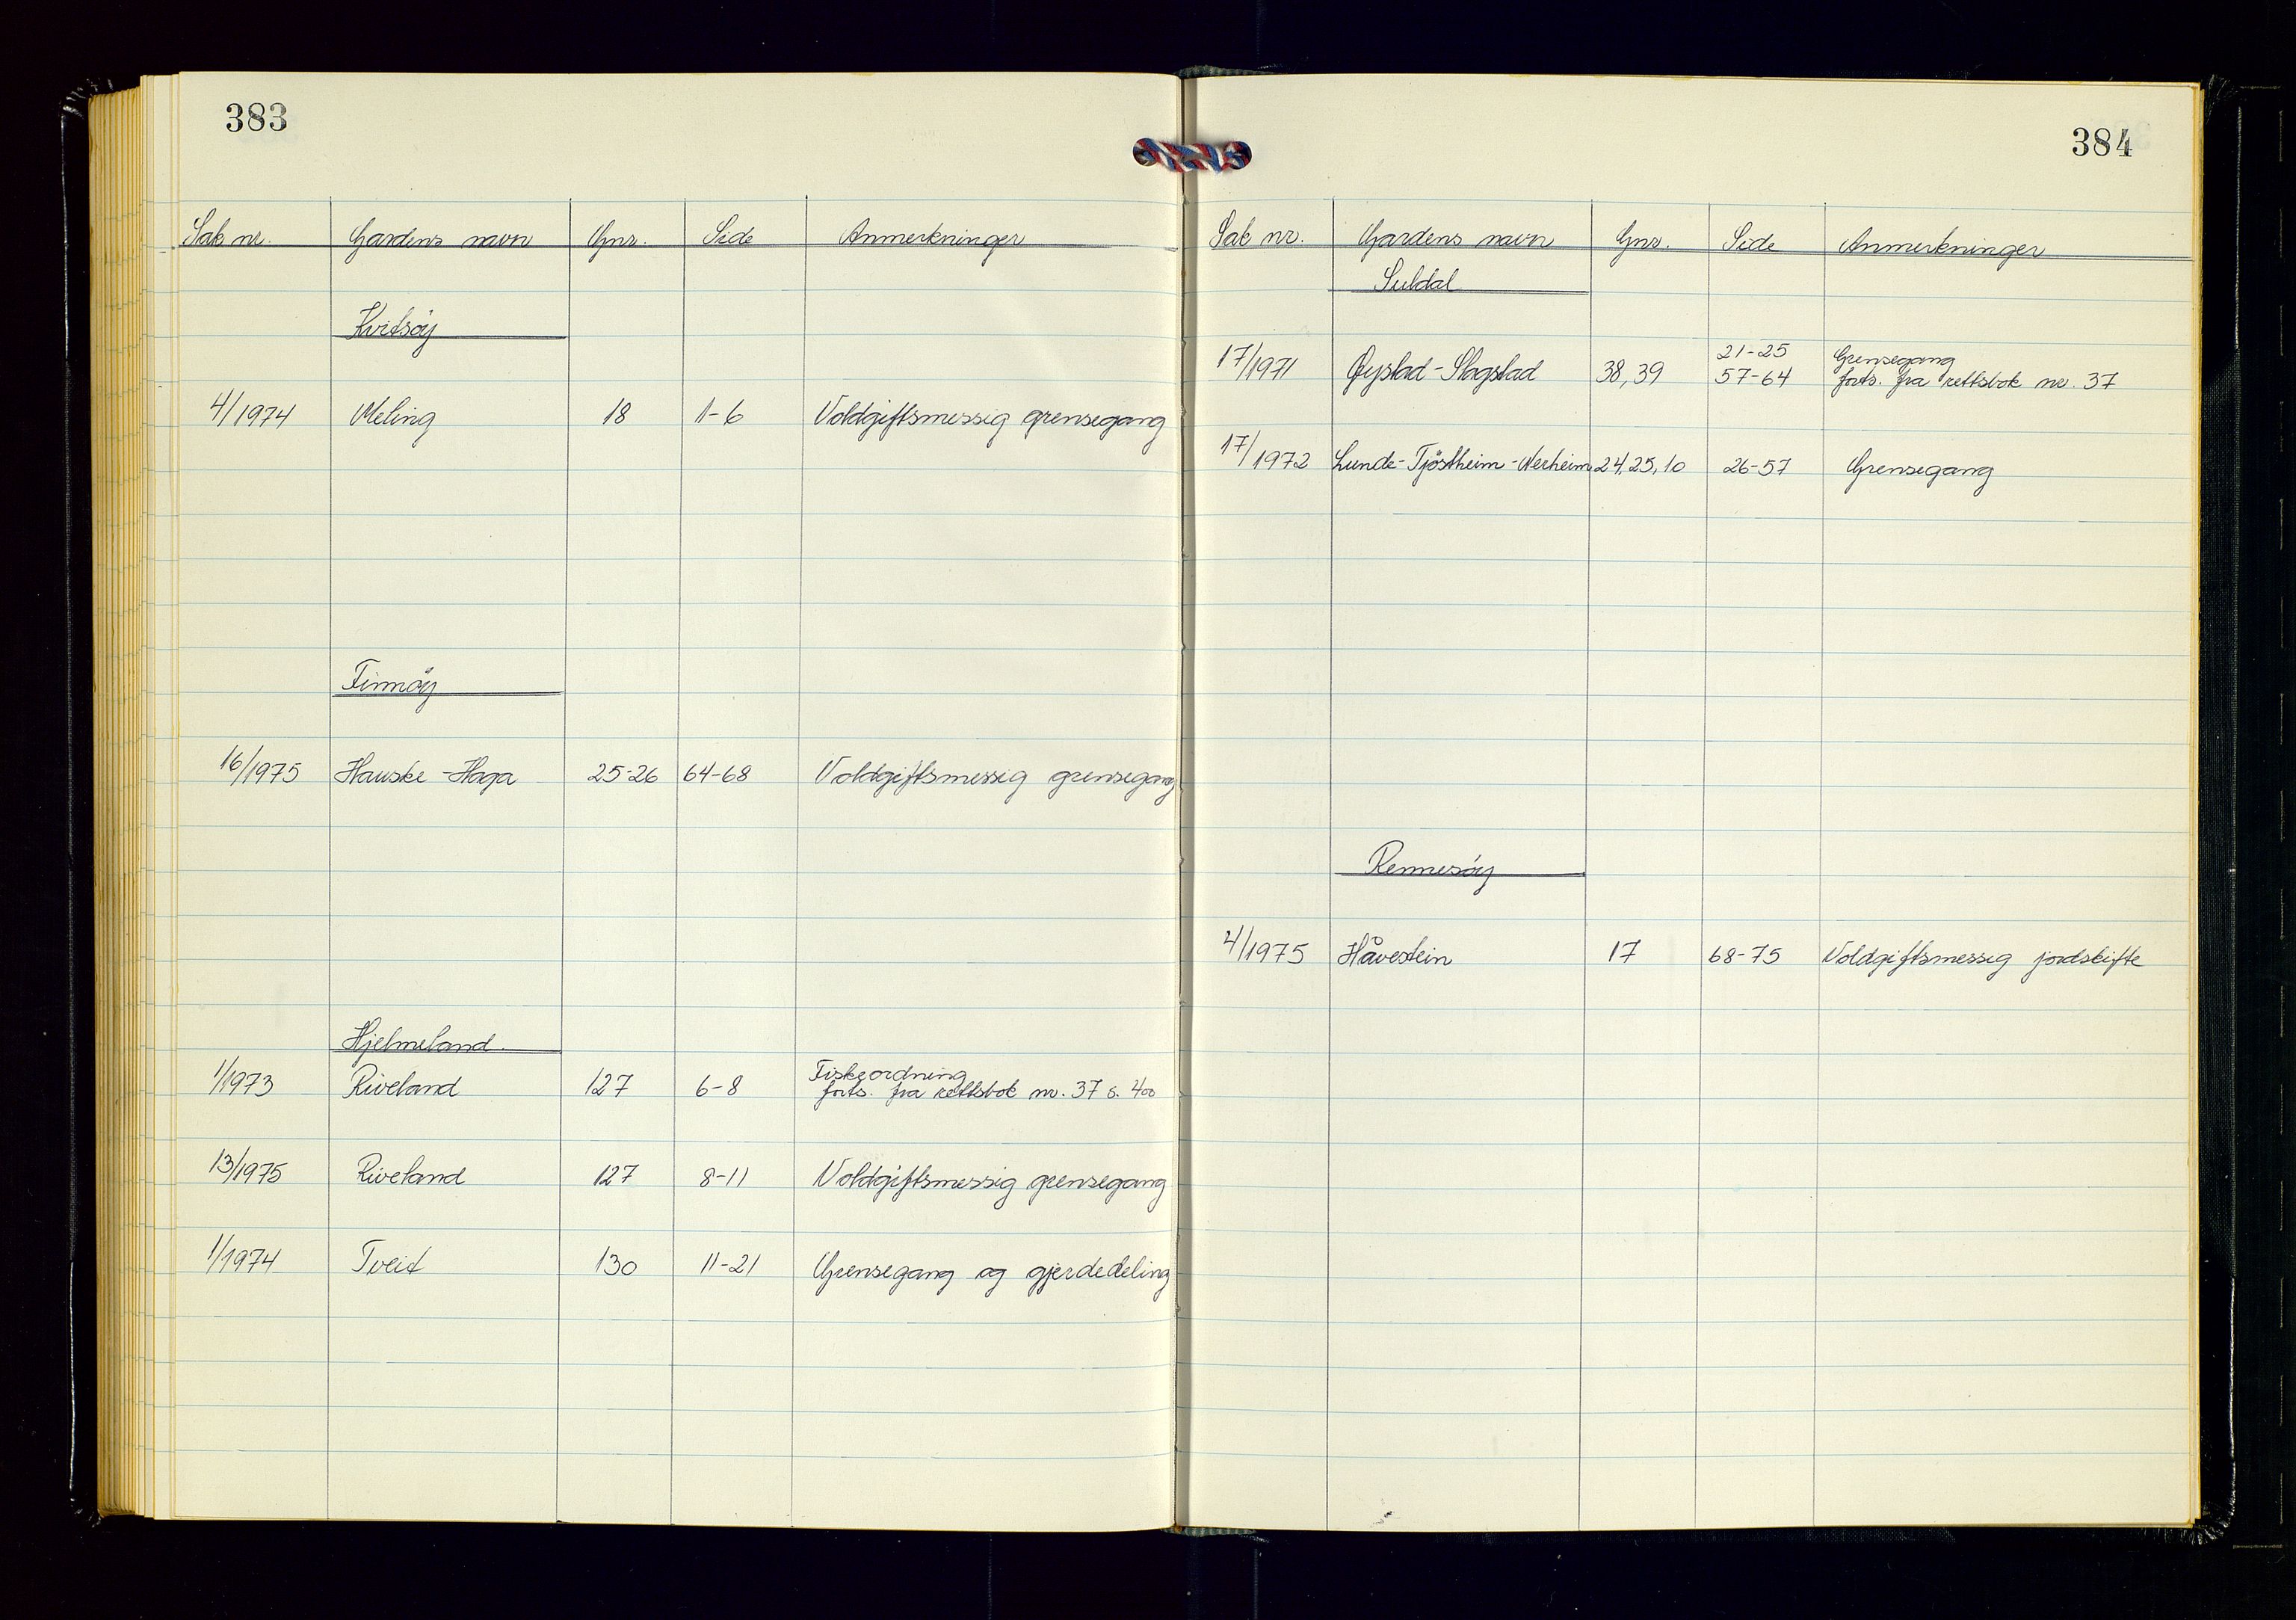 383
Sak nr. Gardens navn Gnr. Side Anmerkninger
Kvitsöy
4/1974 Meling 18 1-6 Voldgiftsmessig grensegang
Finnöy
16/1975 Hauske - Haga 25-26 64-68 Voldgiftsmessig grensegang
Hjelmeland
1/1973 Riveland 127 6-8 Fiskeordning
forts. fra rettsbok nr. 37 s. 400
13/1975 Riveland 127 8-11 Voldgiftsmessig grensegang
1/1974 Tveit 130 11-21 Grensegang og gjerdedeling
384
Sak nr. Gardens navn Gnr. Side Anmerkninger
Suldal
21-25 Grensegang
17/1971 Øystad - Slagstad 38, 39 57-64 forts. fra rettsbok nr. 37
17/1972 Lunde - Tjöstheim - Nerheim 24, 25, 10 26-57 Grensegang
Rennesöy
4/1975 Håvestein 17 68-75 Voldgiftsmessig jordskifte